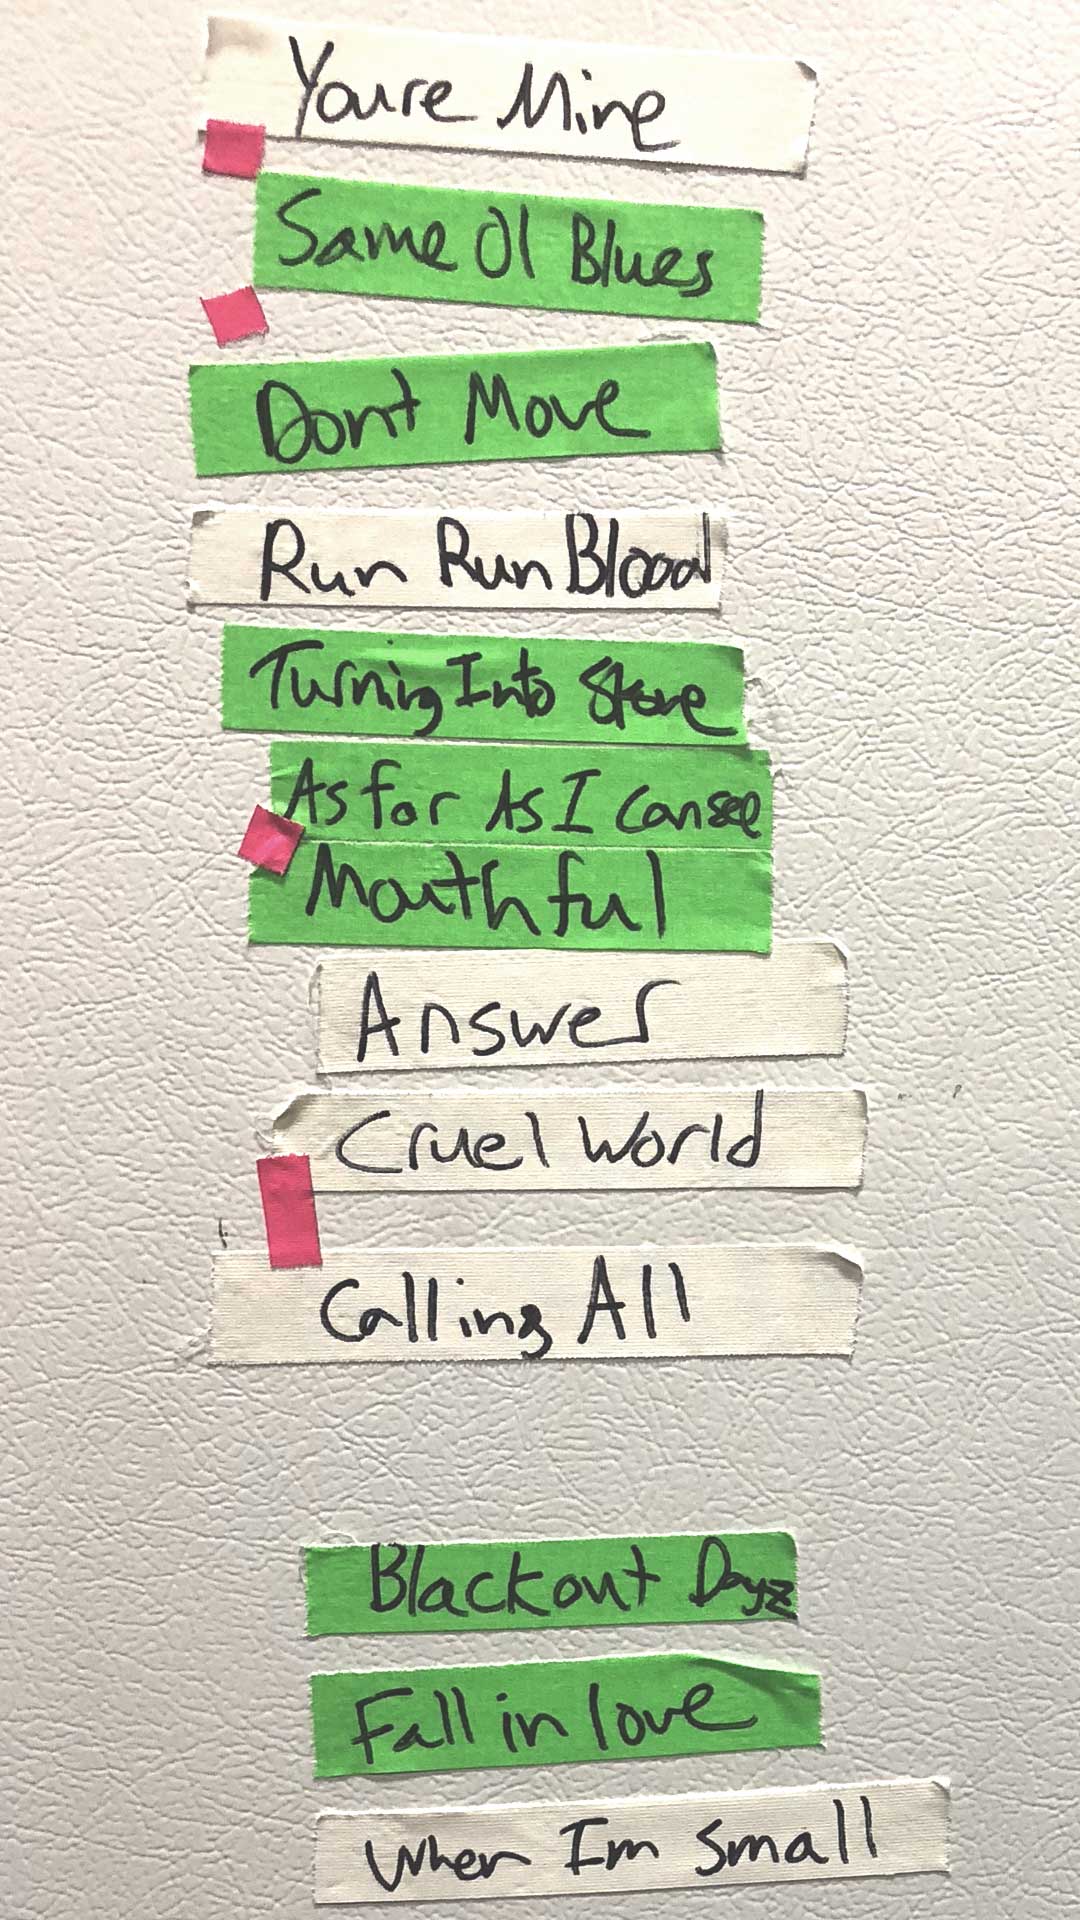 Youre Mine
Same Ol Blues
Dont Move
Run Run Blood
Turning Into Stone
As for As I can see
Mouthful
Answer
Cruel World
Calling All
Blackout Dayz
Fall in love
When Im Small